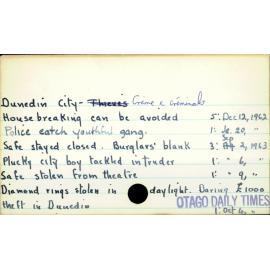 Dunedin City - Thieves Crime & criminals
House breaking can be avoided 5: Dec 12, 1962
Police catch youthful gang. 1: Je. 20, "
Safe stayed closed. Burglars' blank 3: Sep 2, 1963
Plucky city boy tackled intruder 1: " 6, "
Safe stolen from theatre 1: " 9, "
Diamond rings stolen in daylight. Daring £1000
theft in Dunedin 1: Oct 4, "
OTAGO DAILY TIMES